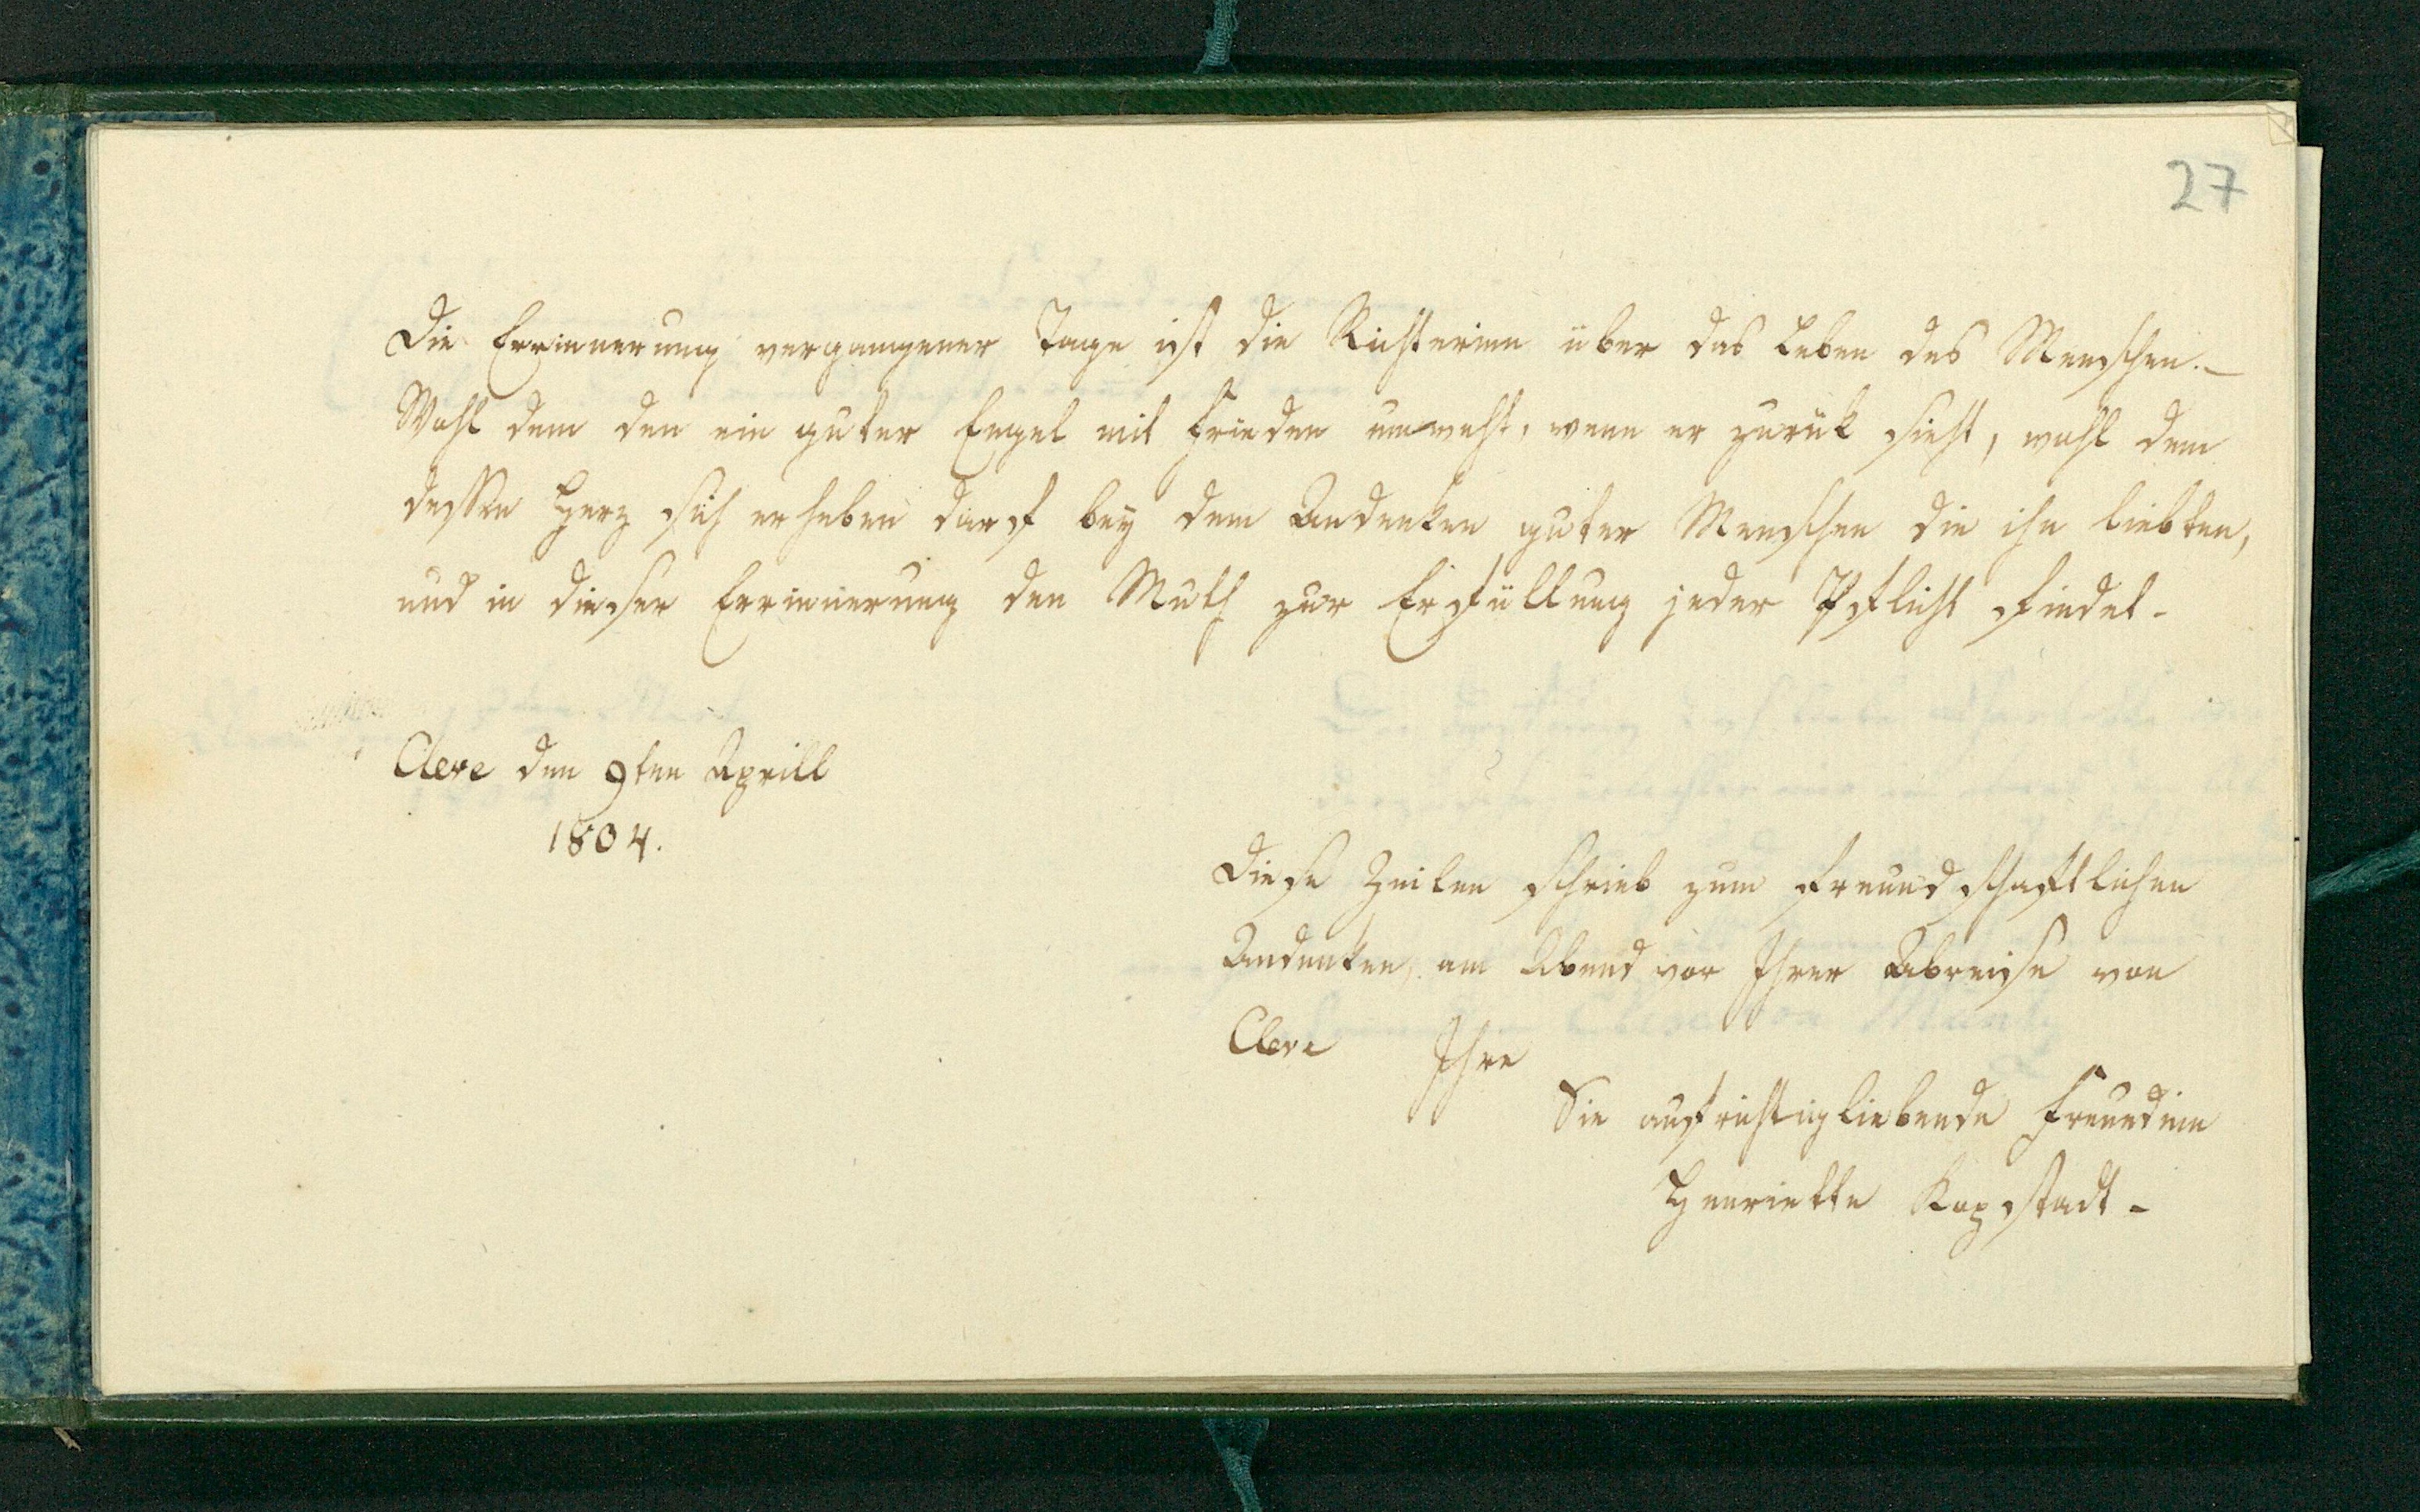 27
Die Errinnerung vergangener Tage ist die Richterinn über das Leben des Menschen. –
Wohl dem den ein guter Engel mit Frieden umweht, wenn er zurük sieht, wohl dem
dessen Herz sich erheben darf bey dem Andenken guter Menschen die ihn liebten,
und in dieser Errinnerung den Muth zur Erfüllung jeder Pflicht findet. 
Cleve den 9ten Aprill
1804.
Diese Zeilen schrieb zum freundschaftlichen
Andenken, am Abend vor Ihrer Abreise von
Cleve Ihre
Sie aufrichtig liebende Freundinn
Henriette Kopstadt –